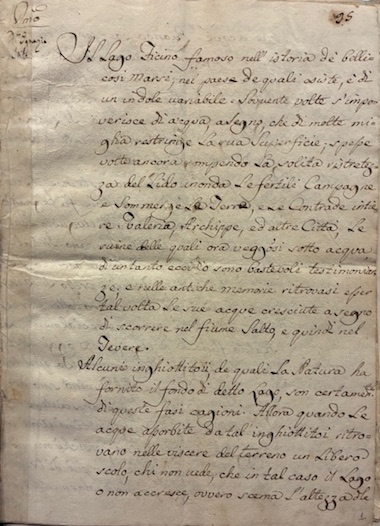 95
Il Lago Fucino, famoso nell' istoria de' belli-
cosi Marsi, nei paese de quali esiste, è di
un indole variabile. Sovvente volte s'impo-
verisce di acqua, a segno, che di molte mi-
glia restringe la sua superficie; spesse
volte ancora rompendo la solita ristretez-
za del Lido inonda le fertili Campagne
e sommerge le Terre, e le Contrade intie-
re. Valeria, Archippe, ed altre Città, le
ruine delle quali ora veggonsi sotto acqua
di un tanto eccesso sono bastevoli testimonian-
ze, e nelle antiche memorie ritrovasi esser
tal volta le sue acque cresciute a segno
di scorrere nel fiume Salto, e quindi nel
Tevere.
Alcuni inghiottitoij, de quali la Natura ha
fornito il fondo di detto Lago, son certamte
di queste fasi cagioni. Allora quando le
acque assorbite da tal inghiottitoi ritro-
vano nelle viscere del terreno un libero
scolo, chi non vede, che in tal caso il Lago
o non accresce, ovvero scema l'altezza